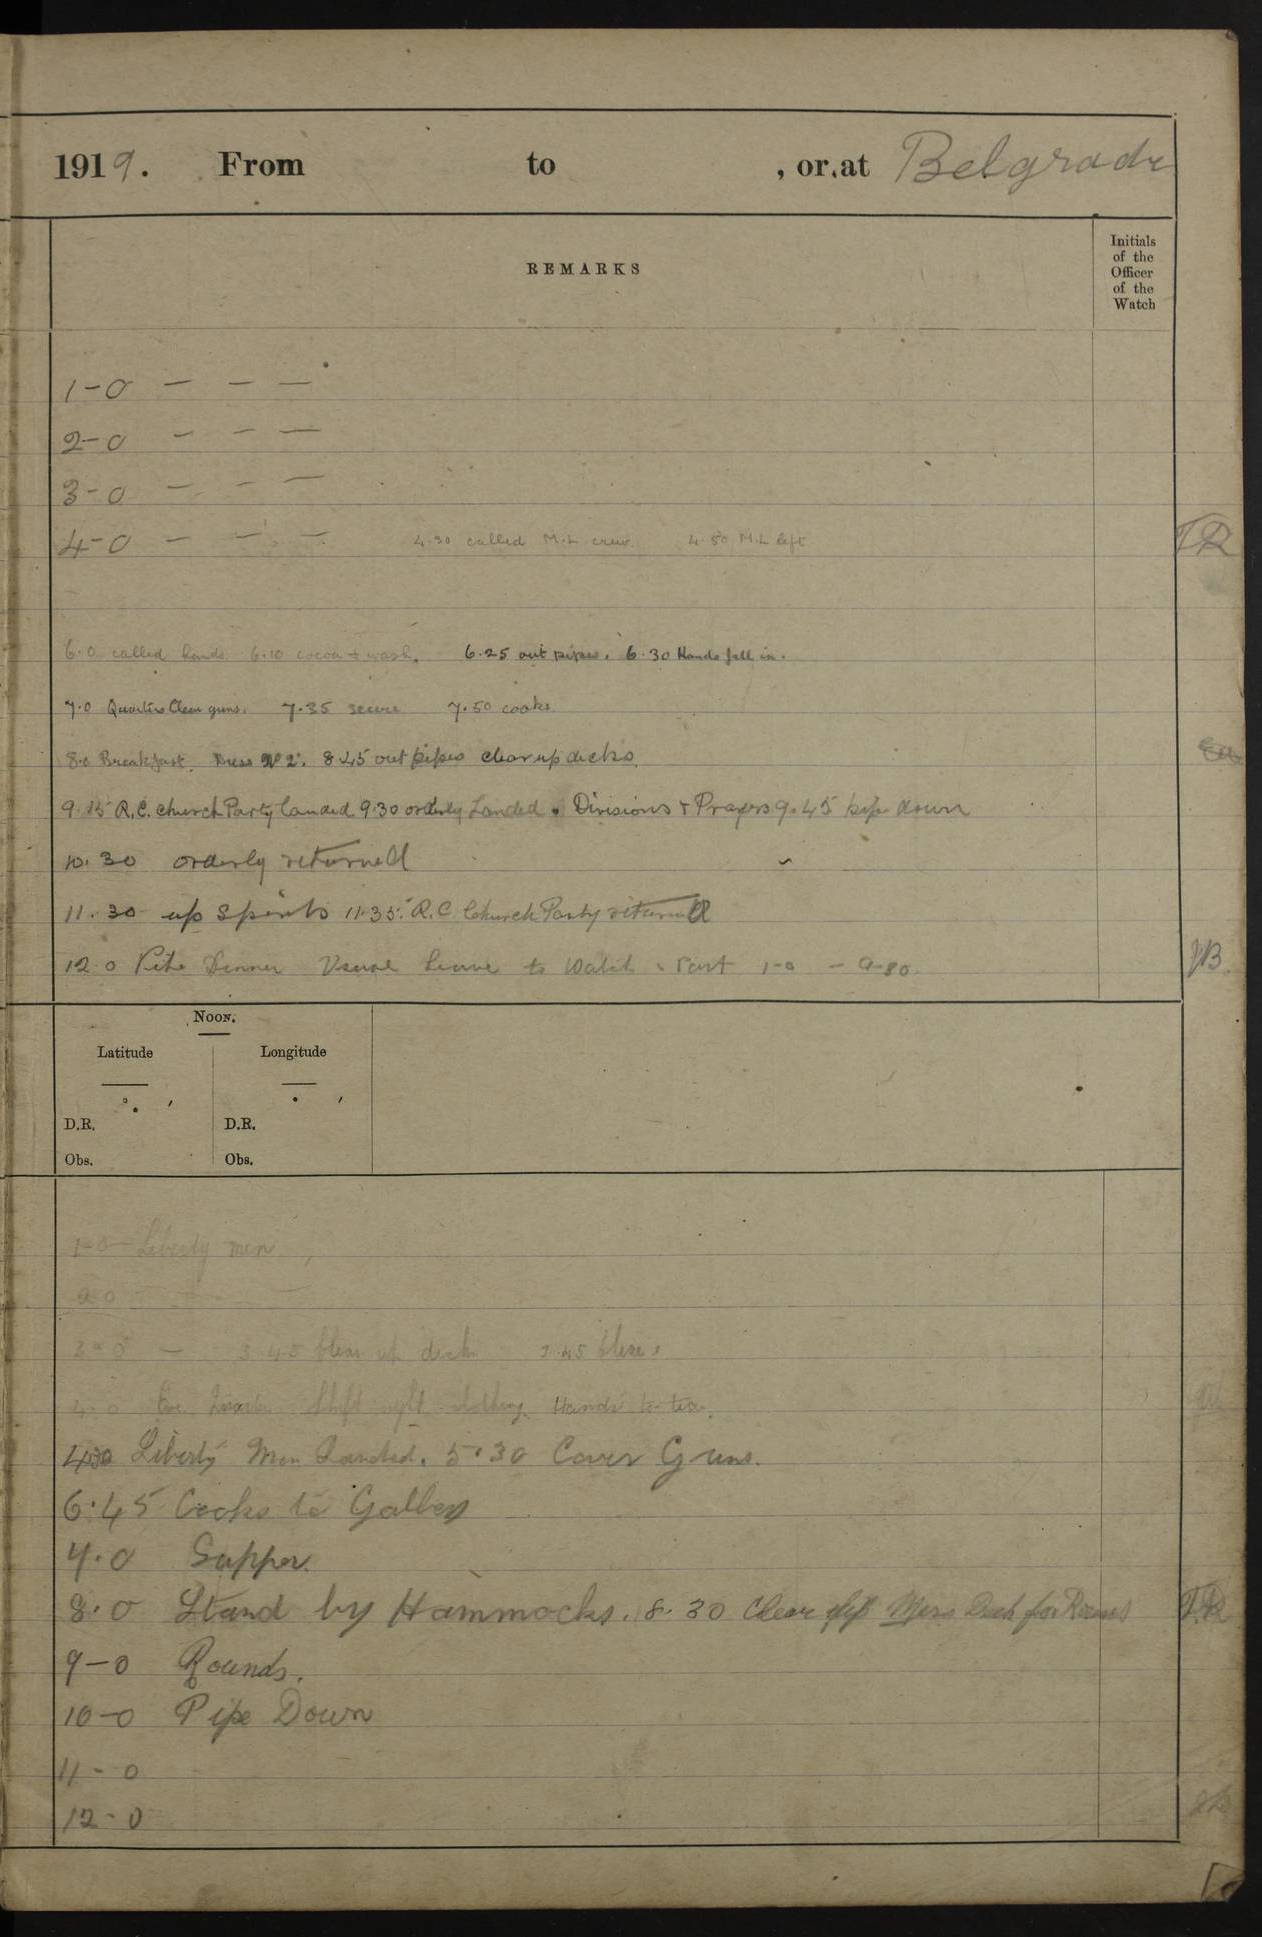 1919. From to , or at Belgrade
REMARKS
Initials
of the
Officer
of the
Watch
1-0 — — —
2-0 — — —
3-0 — — —
4-0 — — — 4.30 called M.L crew 4.50 M.L left
TR
6.0 called hands 6.10 cocoa + wash. 6.25 out pipes. 6.30 Hands fall in.
7.0 Quarters Clean guns. 7.35 secure 7.50 cooks
8.0 Breakfast. Dress No 2. 8.45 out pipes clear up decks.
9.15 R.C. Church Party landed 9.30 orderly Landed. Divisions + Prayers 9.45 pipe down
10.30 orderly returned
11.30 up Spirits 11.35 R.C. Church Party returned
12.0 Dinner Usual Leave to Watch Part 1-0 -
NOON.
Latitude Longitude
D.R. D.R.
Obs. Obs.
1-0 — Liberty men
2 0
3-0 — 3.45 Clear up deck 3.45
4-0 Shift clothing. Hands to tea.
430 Liberty Men Landed. 5.30 Cover Guns.
6.45 Cooks to Galley
7.0 Supper.
8.0 Stand by Hammocks. 8.30 Clear up Mess Deck for Rounds
9-0 Rounds.
10-0 Pipe Down
11-0
12-0